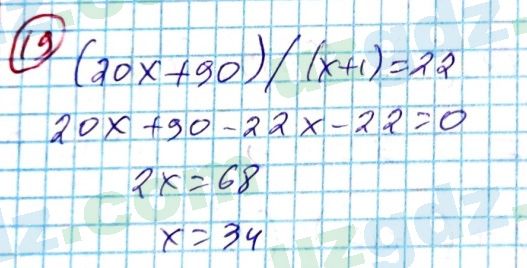 19
(20x+90)/(x+1)=22
20x+90-22x-22=0
2x=68
x=34